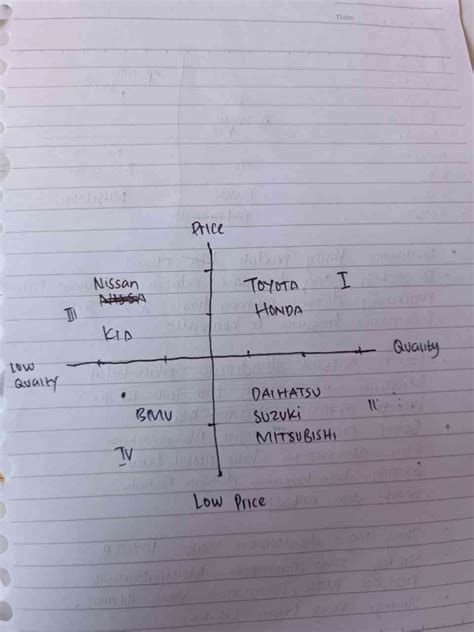 Date
Price
Nissan
TOYOTA I
HONDA
III
KIA
LOW
QUALITY
Quality
DAIHATSU
BMU
SUZUKI II
MITSUBISHI
IV
LOW PRICE